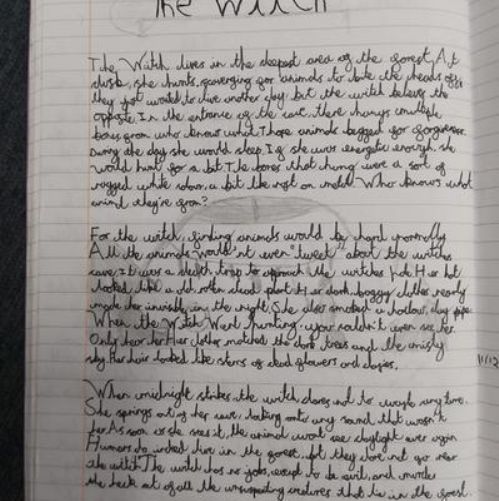 The Witch
The Witch lives in the deepest area of the forest. At
dusk, she hunts, scavenging for animals to bite the heads off
they just wanted to live another day but the witch believes the
opposite. In the entrance of the cave, there hangs multiple
bones from who knows what. Those animals begged for forgiveness.
During the day she would sleep. If she was energetic enough, she
would hunt for a bit. The bones that hung were a sort of
ragged white colour, a bit like rust on metal. Who knows what
animal they're from?
For the witch, finding animals would be hard normally
All the animals would'nt even "tweet" about the witches
cave. It was a death trap to approach the witches hide. Her hat
looked like a old rotten dead plant. Her dark, baggy clothes nearly
made her invisible in the night. She also smoked a hollow, clay pipe.
When the Witch Went hunting, you couldn't even see her.
Only hear her. Her clothes matched the dark trees and the misty
sky. Her hair looked like stems of dead flowers and daisies.
11/12
When midnight strikes, the witch dares not to waste any time.
She springs out of her cave, taking onto any sound that wasn't
her. As soon as she sees it, the animal wont see daylight ever again
Humans do indeed live in the forest, but they dare not go near
the witch. The witch has no jobs, except to be evil, and murder
the heck out of all the unsuspecting creatures that lie in the forest.